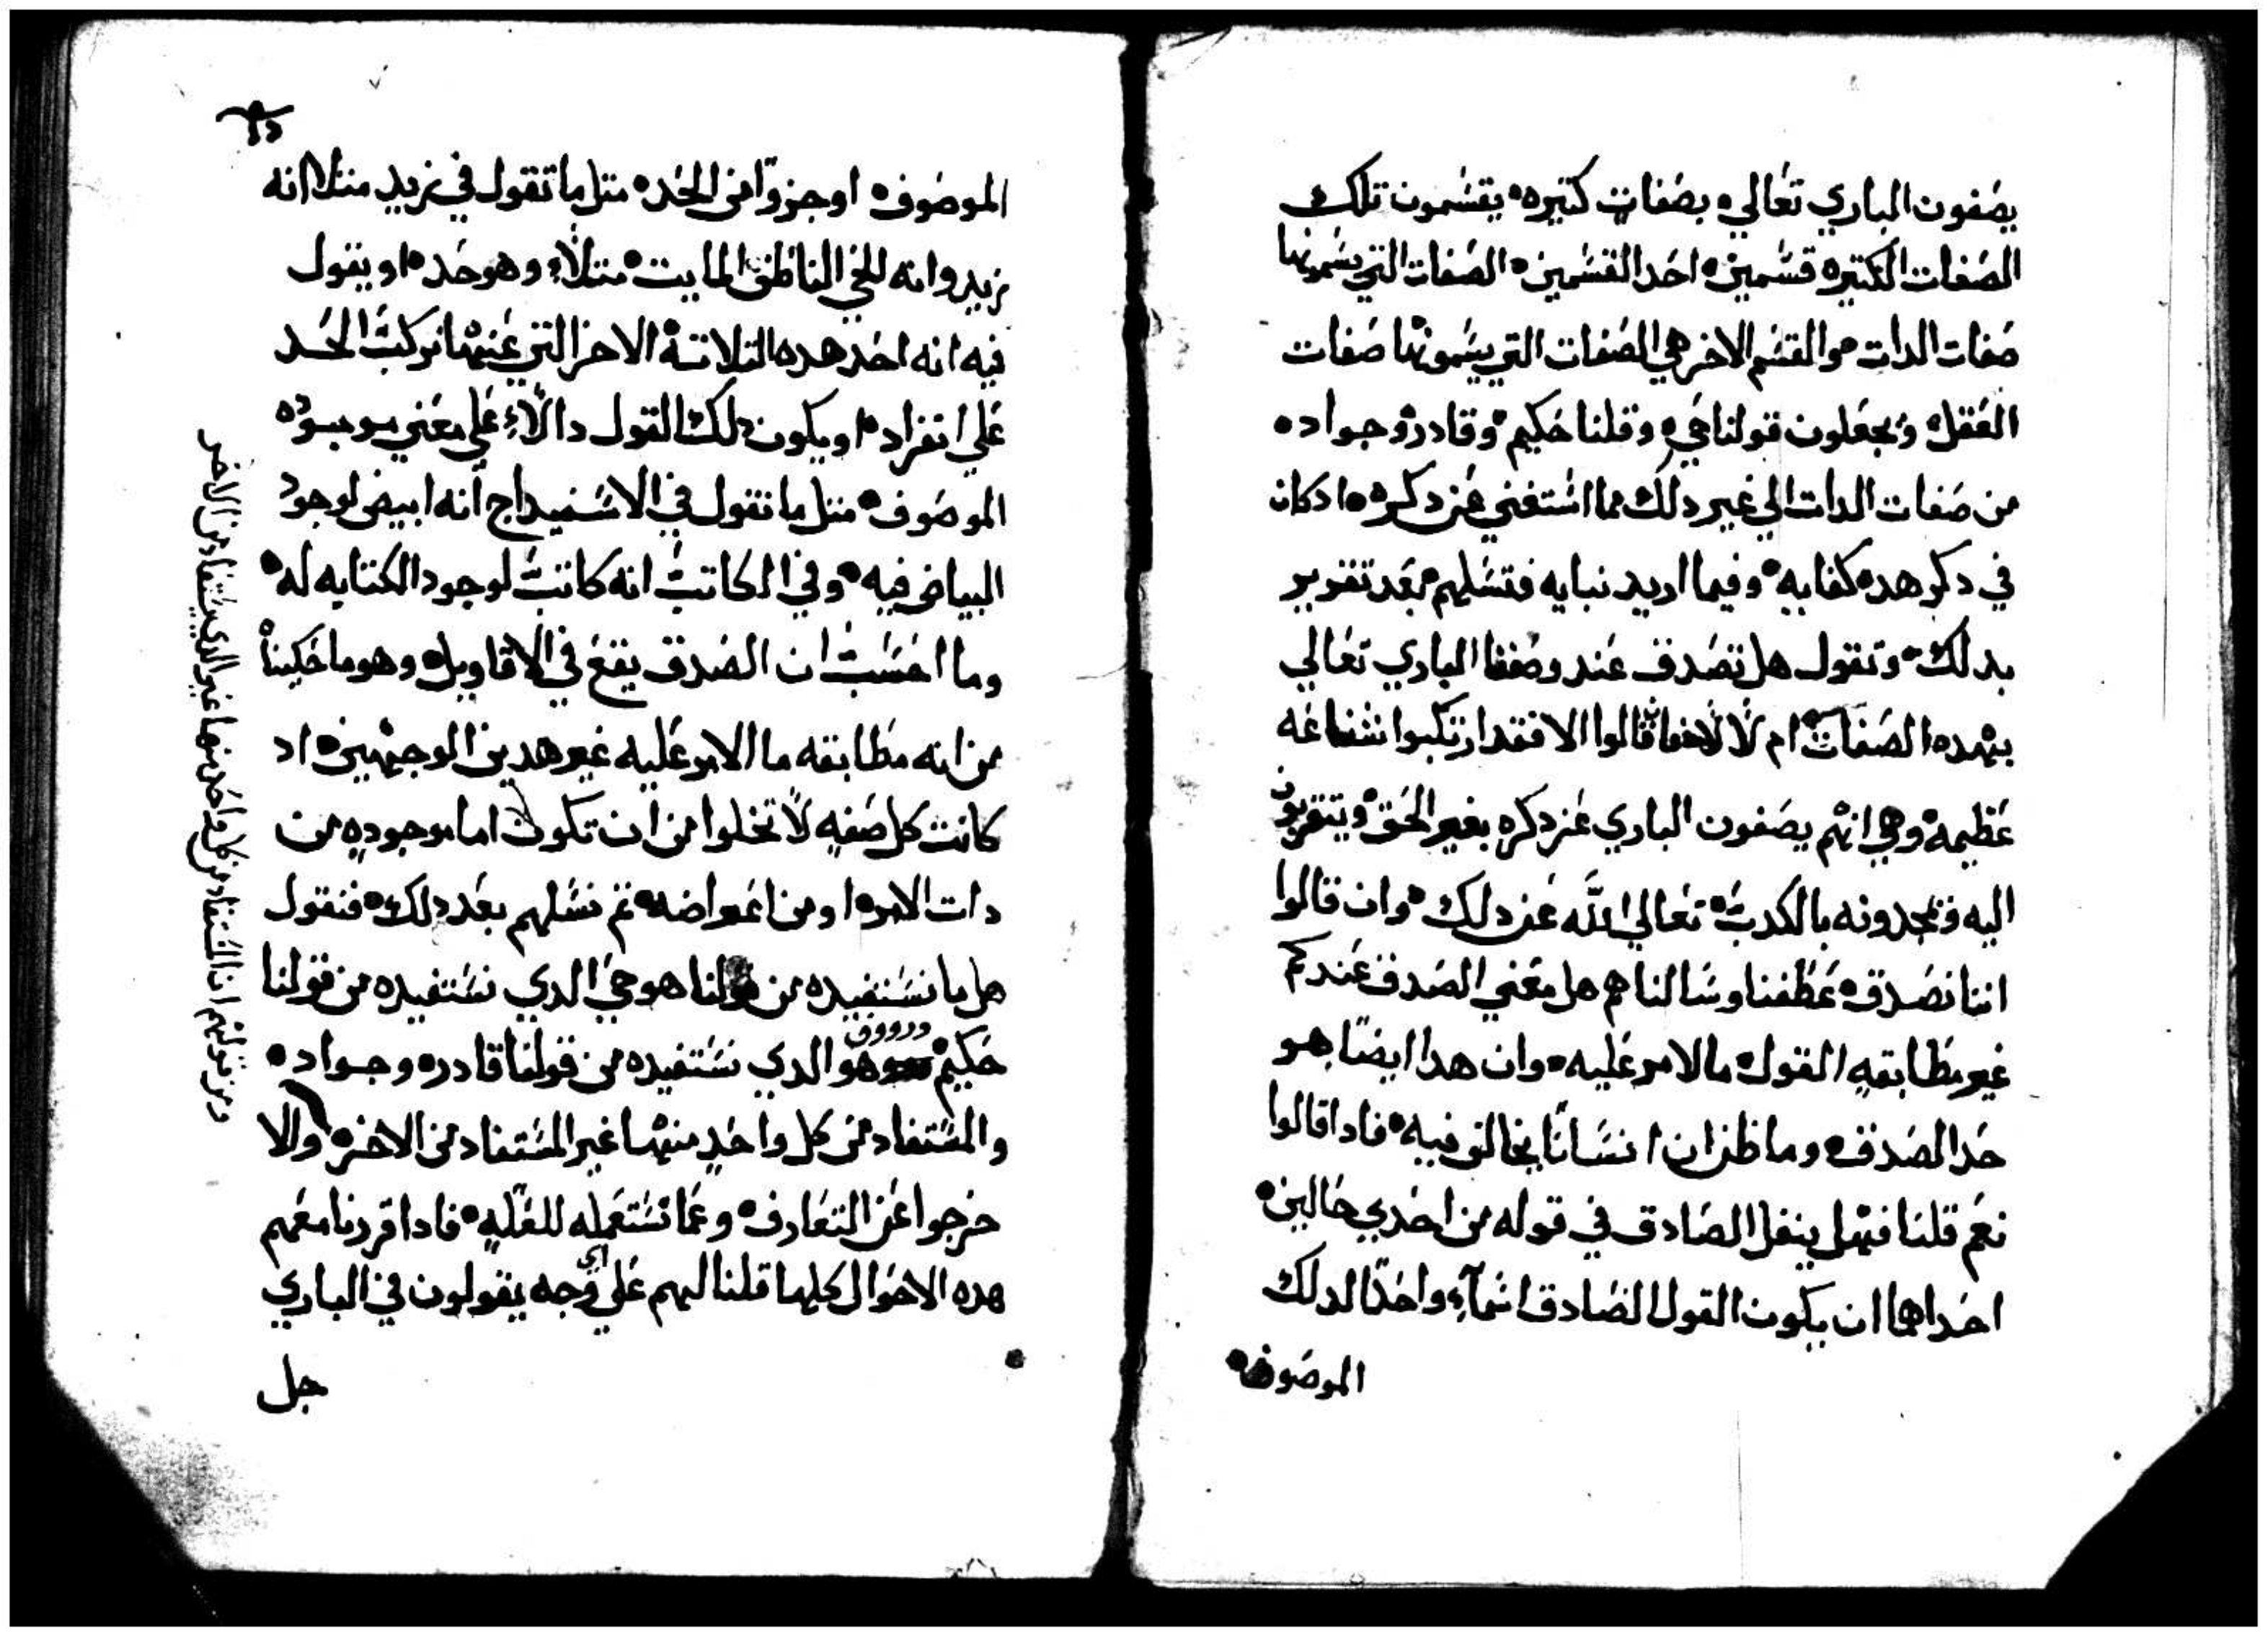 يصفون الباري تعالي بصفات كتيره يقسمون تلك
الصفات الكتيره قسمين احد القسمين الصفات التي يسمونها
صفات الدات والقسم الاخر هي الصفات التي يسمونها صفات
الفعل ويجعلون قولنا حي وقلنا حكيم وقادر وجواد
من صفات الدات الي غير دلك مما استغني عن دكره ادكان
في دكر هده كفايه وفيما اريد نبايه فتسلهم بعد تقرير
بدلك وتقول هل تصدق عند وصفنا الباري تعالي
بهده الصفات ام لا قالوا لا فقد ارتكبوا شناعه
عظيمه وهي انهم يصفون الباري عز دكره بغير الحق ويتقربون
اليه ويمجدونه بالكدب تعالي الله عن دلك وان قالوا
اننا نصدق عطفنا وسالناهم هل معني الصدق عندكم
غير مطابقه القول ما الامر عليه وان هدا ايضا هو
حد الصدق وما ظن ان انسانا يخالف فيه فادا قالوا
نعم قلنا فهل ينفل الصادق في قوله من احدي حالين
احداهما ان يكون القول الصادق اسما واحدا لدلك
الموصوف
الموصوف او جزوا من الحد متل ما تقول في زيد متلا انه
زيد وانه الحي الناطق المايت متلا وهو حده او يقول
فيه انه احد هده التلاتة الاخر التي عنها تركب الحد
علي انفراد او يكون دلك القول دالا علي معني موجود
الموصوف متل ما تقول في الاسفيداج انه ابيض لوجود
البياض فيه وفي الكاتب انه كاتب لوجود الكتابه له
وما احسب ان الصدق يقع في الاقاويل وهو ما حكيناه
من انه مطابقه ما الامر عليه غير هدين الوجهين اد
كانت كل صفه لا تخلوا من ان تكون اما موجوده من
دات الامر او من اعراضه تم نسلهم بعد دلك فنقول
هل ما نستفيده من قولنا هو حي الدي نستفيده من قولنا
حكيم هو الدي نستفيده من قولنا قادر وجواد
والمستفاد من كل واحد منها غير المستفاد من الاخر والا
خرجوا عن التعارف وعما نستعمله للغله فادا قررنا معهم
هده الاحوال كلها قلنا لهم علي اي وجه يقولون في الباري
جل
المستفاد من كل واحد منها غير الدي يستفاد من الاخر